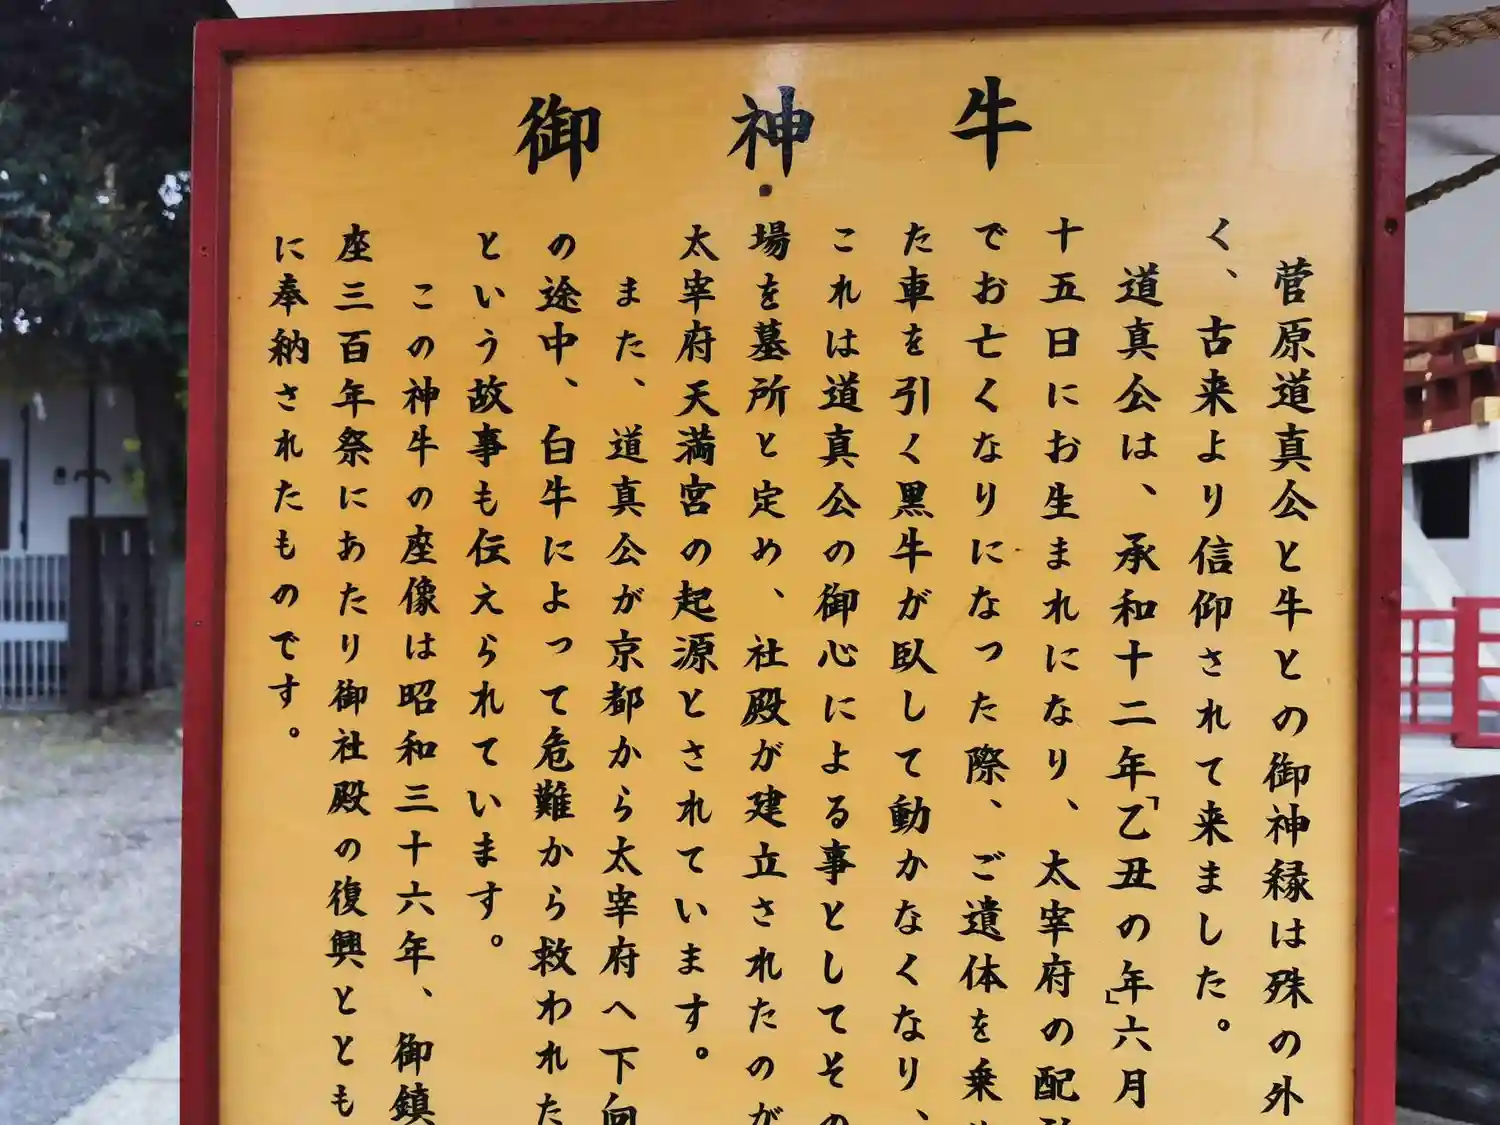 御神牛
菅原道真公と牛との御神縁は殊の外
く、古来より信仰されて来ました。
道真公は、承和十二年「乙丑の年」六月
十五日にお生まれになり、太宰府の配
でお亡くなりになった際、ご遺体を乗
た車を引く黒牛が臥して動かなくなり、
これは道真公の御心による事としてその
場を墓所と定め、社殿が建立されたのが
太宰府天満宮の起源とされています。
また、道真公が京都から太宰府へ下向
の途中、白牛によって危難から救われた
という故事も伝えられています。
この神牛の座像は昭和三十六年、御鎮
座三百年祭にあたり御社殿の復興ととも
に奉納されたものです。